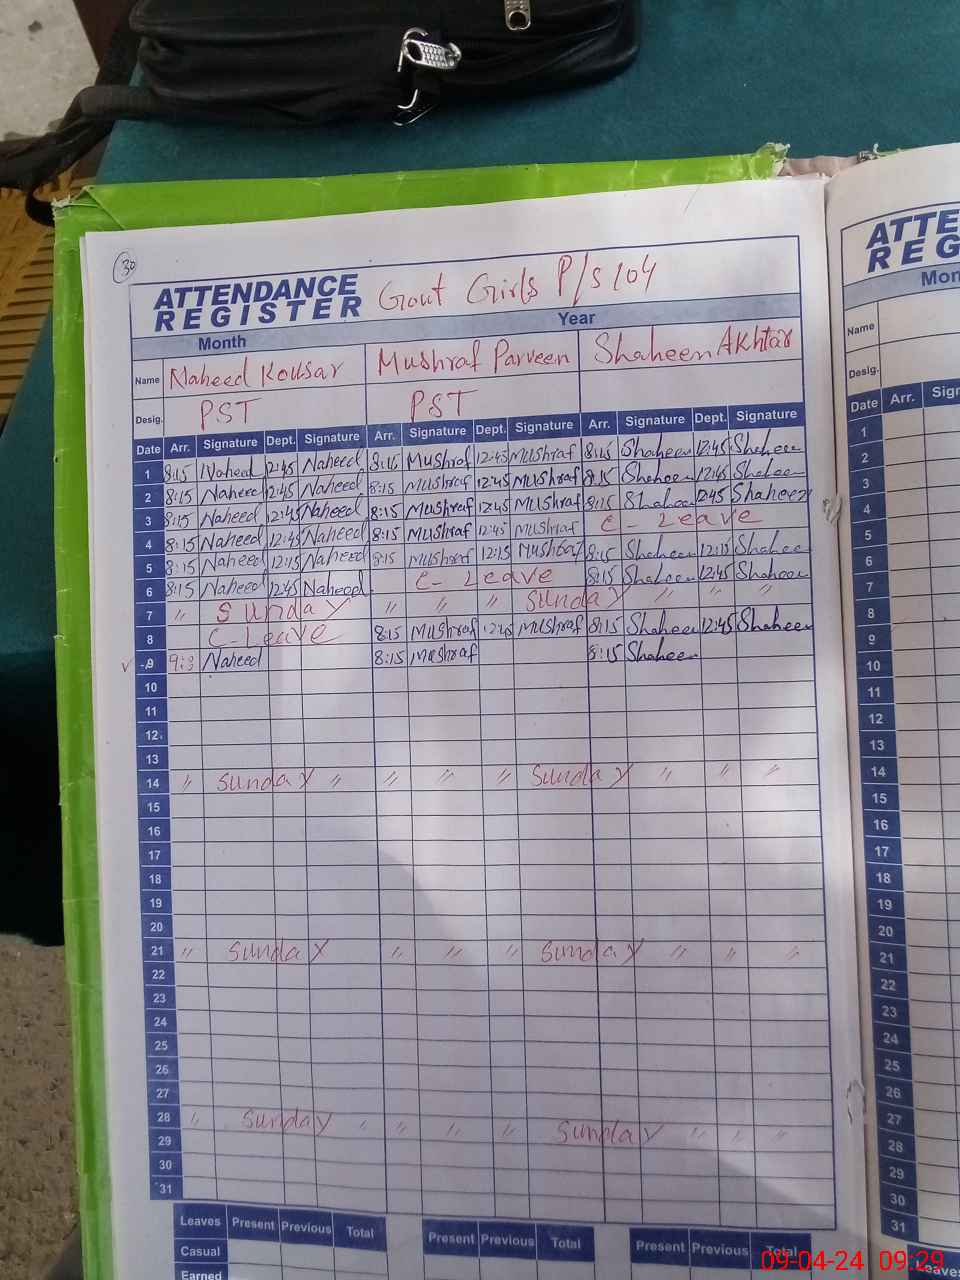 30
ATTENDANCE REGISTER Govt Girls P/S 104
Month Year
Name Naheed Kousar Mushraf Parveen Shaheen Akhtar
Desig. PST PST
Date Arr. Signature Dept. Signature Arr. Signature Dept. Signature Arr. Signature Dept. Signature
1 8:15 Naheed 12:45 Naheed 8:15 Mushraf 12:45 Mushraf 8:15 Shaheen 12:45 Shaheen
2 8:15 Naheed 12:45 Naheed 8:15 Mushraf 12:45 Mushraf 8:15 Shaheen 12:45 Shaheen
3 8:15 Naheed 12:45 Naheed 8:15 Mushraf 12:45 Mushraf 8:15 Shaheen 12:45 Shaheen
4 8:15 Naheed 12:45 Naheed 8:15 Mushraf 12:45 Mushraf C - Leave
5 8:15 Naheed 12:15 Naheed 8:15 Mushraf 12:15 Mushraf 8:15 Shaheen 12:15 Shaheen
6 8:15 Naheed 12:45 Naheed C - Leave 8:15 Shaheen 12:45 Shaheen
7 " Sunday " " " Sunday " " "
8 C - Leave 8:15 Mushraf 12:45 Mushraf 8:15 Shaheen 12:45 Shaheen
9 Naheed 8:15 Mushraf 8:15 Shaheen
10
11
12
13
14 " Sunday " " " " Sunday " " "
15
16
17
18
19
20
21 " Sunday " " " Sunday " " "
22
23
24
25
26
27
28 " Sunday " " " " Sunday " " "
29
30
31
Leaves Present Previous Total Present Previous Total Present Previous Total
Casual
Earned
ATTE
REG
Mon
Name
Desig.
Date Arr. Sign
1
2
3
4
5
6
7
8
9
10
11
12
13
14
15
16
17
18
19
20
21
22
23
24
25
26
27
28
29
30
31
Leaves
09-04-24 09:29